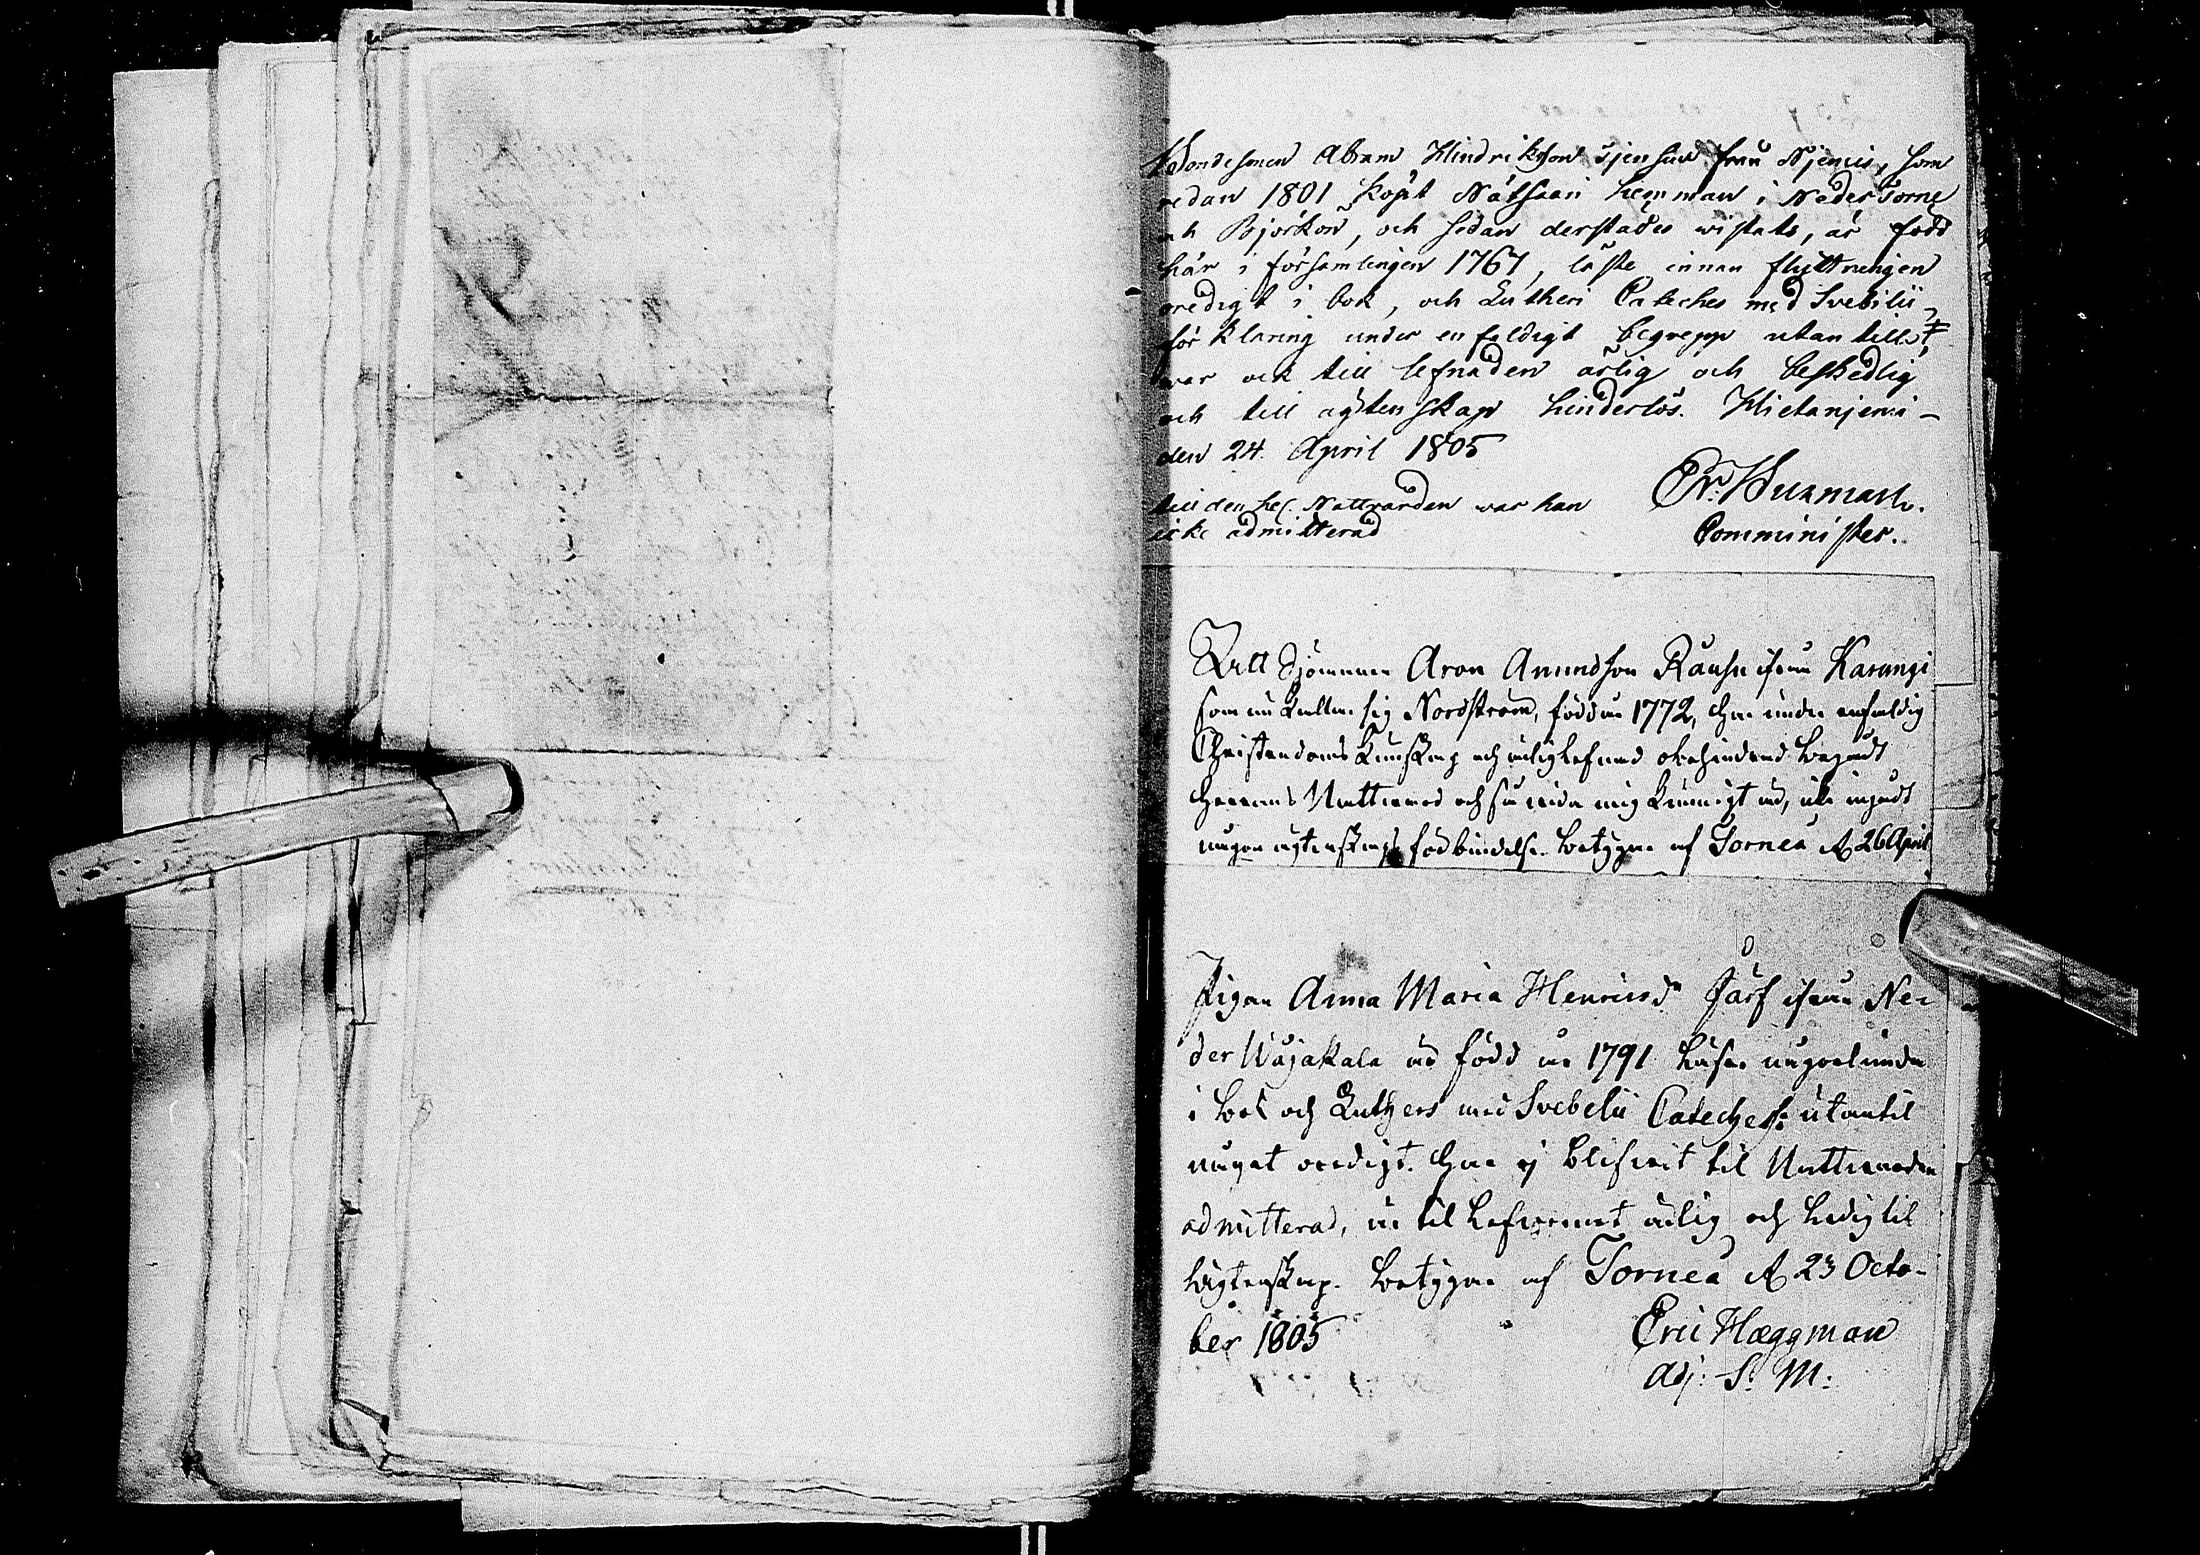 Bondesonen Abram Hindrikson Ojensuu från Njemis, som
redan 1801 köpt Nätsaari hemman i Neder Torne
och Björkön, och sedan derstädes wistats, är född
här i församlingen 1767, läste innan flyttningen
oredigt i bok, och Lutheri Cateches med Svebilii
förklaring under enfaldigt begrepp utantill
war ock till lefnaden ärlig och beskedlig
och till ägtenskap hinderlös. Hietanjemi
den 24. April 1805
Er. Wuxmarck.
till den hel. Nattvarden war han
icke admitterad
Comminister.
Att Sjömannen Aron Amundson Rauhu ifrån Karungi
som nu kallar sig Nordström, född år 1772, har under enfaldig
Christendoms kunskap och ärlig lefnad obehindrad begådt
Herrans Nattward och så widt mig kunnigt är, icke ingådt
någon ägtenskaps förbindelse betygar af Torneå d. 26 April
Pigan Anna Maria Henricsdr Järf ifrån Ne-
der Wojakala är född år 1791 läser någorlunda
i bok och Luthers med Svebelii Cateches: utantil
något oredigt. Har ej blifwit til Nattwarden
admitterad, är til lefwernet ärlig och ledig til
ägtenskap. betygar af Torneå d. 23 Octo-
ber 1805
Eric Hæggman
Adj. S. M.